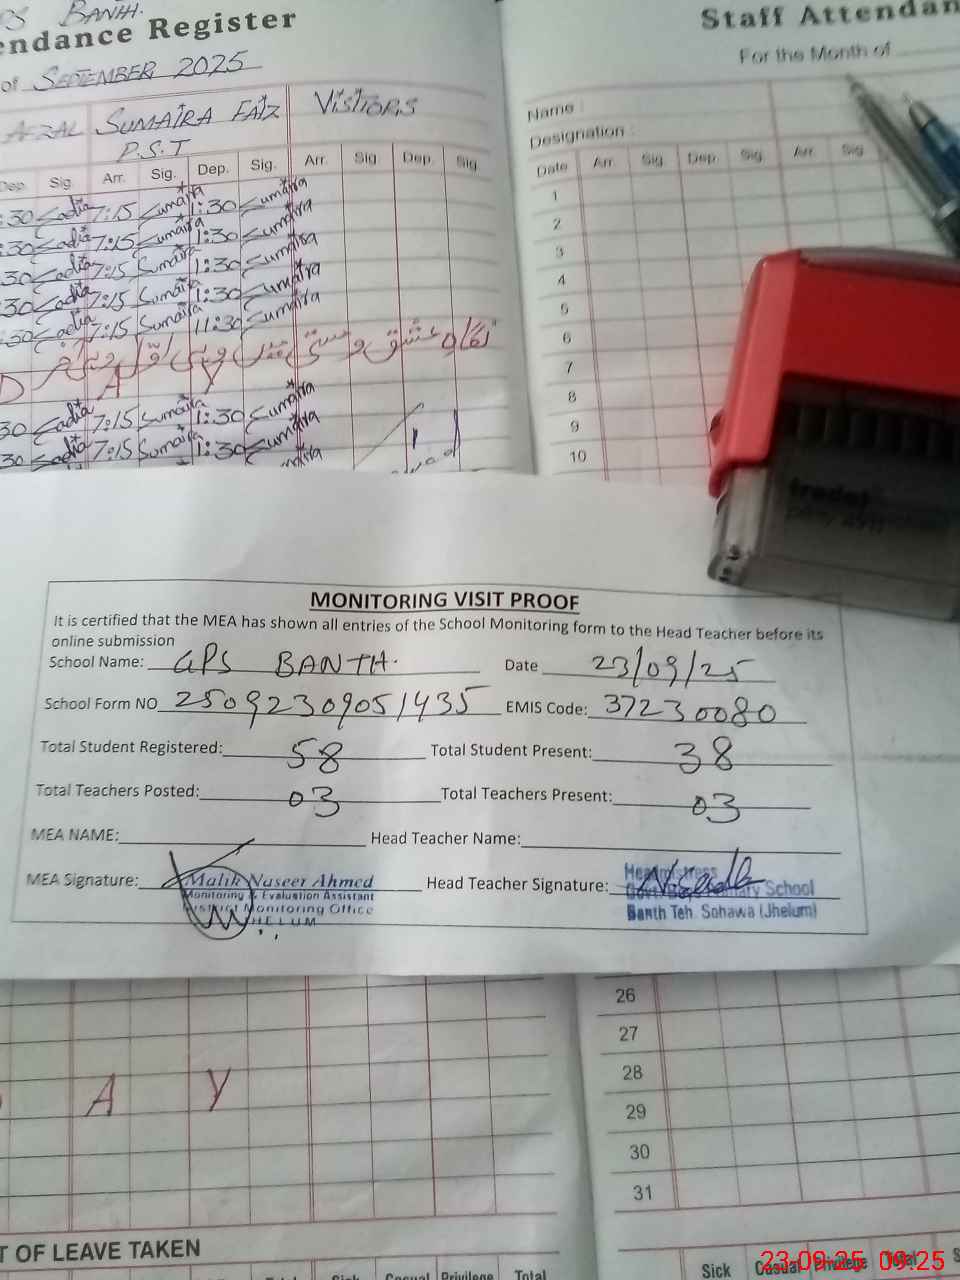 PS BANTH.
endance Register
of SEPTEMBER 2025
AFZAL SUMAIRA FAIZ VISITORS
P.S.T
Dep. Sig. Arr. Sig. Dep. Sig. Arr. Sig. Dep. Sig.
:30 Sadia 7:15 Sumaira 1:30 Sumaira
:30 Sadia 7:15 Sumaira 1:30 Sumaira
:30 Sadia 7:15 Sumaira 1:30 Sumaira
:30 Sadia 7:15 Sumaira 1:30 Sumaira
:30 Sadia 7:15 Sumaira 11:30 Sumaira
نگاہ عشق و مستی میں وہی اول وہی آخر
D A Y
30 Sadia 7:15 Sumaira 1:30 Sumaira
30 Sadia 7:15 Sumaira 1:30 Sumaira
maira
Staff Attendan
For the Month of
Name :
Designation :
Date Arr. Sig. Dep. Sig. Arr. Sig.
1
2
3
4
5
6
7
8
9
10
trodat
MONITORING VISIT PROOF
It is certified that the MEA has shown all entries of the School Monitoring form to the Head Teacher before its
online submission
School Name: GPS BANTH. Date 23/09/25
School Form NO 25092309051435 EMIS Code: 37230080
Total Student Registered: 58 Total Student Present: 38
Total Teachers Posted: 03 Total Teachers Present: 03
MEA NAME: Head Teacher Name:
MEA Signature: Head Teacher Signature:
Malik Naseer Ahmed
Monitoring & Evaluation Assistant
District Monitoring Office
JHELUM
Headmistress
Govt. Boys Primary School
Banth Teh. Sohawa (Jhelum)
A Y
26
27
28
29
30
31
T OF LEAVE TAKEN
Sick Casual Privilege Total
Sick Casual Privilege Total S
23-09-25 09:25